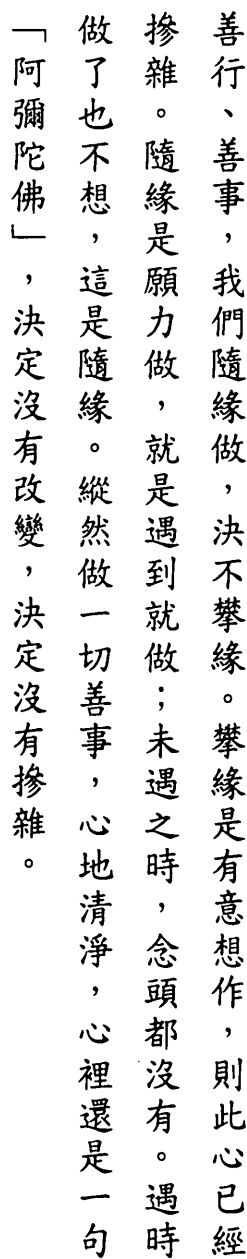 善行、善事，我們隨緣做，決不攀緣。攀緣是有意想作，則此心已經
摻雜。隨緣是願力做，就是遇到就做；未遇之時，念頭都沒有。遇時
做了也不想，這是隨緣。縱然做一切善事，心地清淨，心裡還是一句
「阿彌陀佛」，決定沒有改變，決定沒有摻雜。